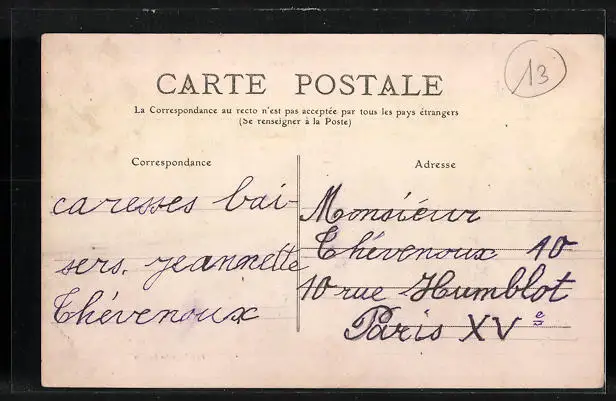 13
CARTE POSTALE
La Correspondance au recto n'est pas acceptée par tous les pays étrangers
(Se renseigner à la Poste)
Correspondance
caresses bai-
sers. Jeannette
Thévenoux
Adresse
Monsieur
Thévenoux 10
10 rue Humblot
Paris XVe